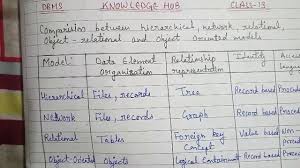 DBMS KNOWLEDGE HUB CLASS-13
Comparision between hierarchical, network, relational,
Object-relational and Object Oriented models
Model Data Element Organization Relationship representation Identity Access
Hierarchical Files, records Tree Record based
Network Files, records Graph Record based
Relational Tables Foreign key Concept Value based
Object-Oriented Objects Logical Containment Record based